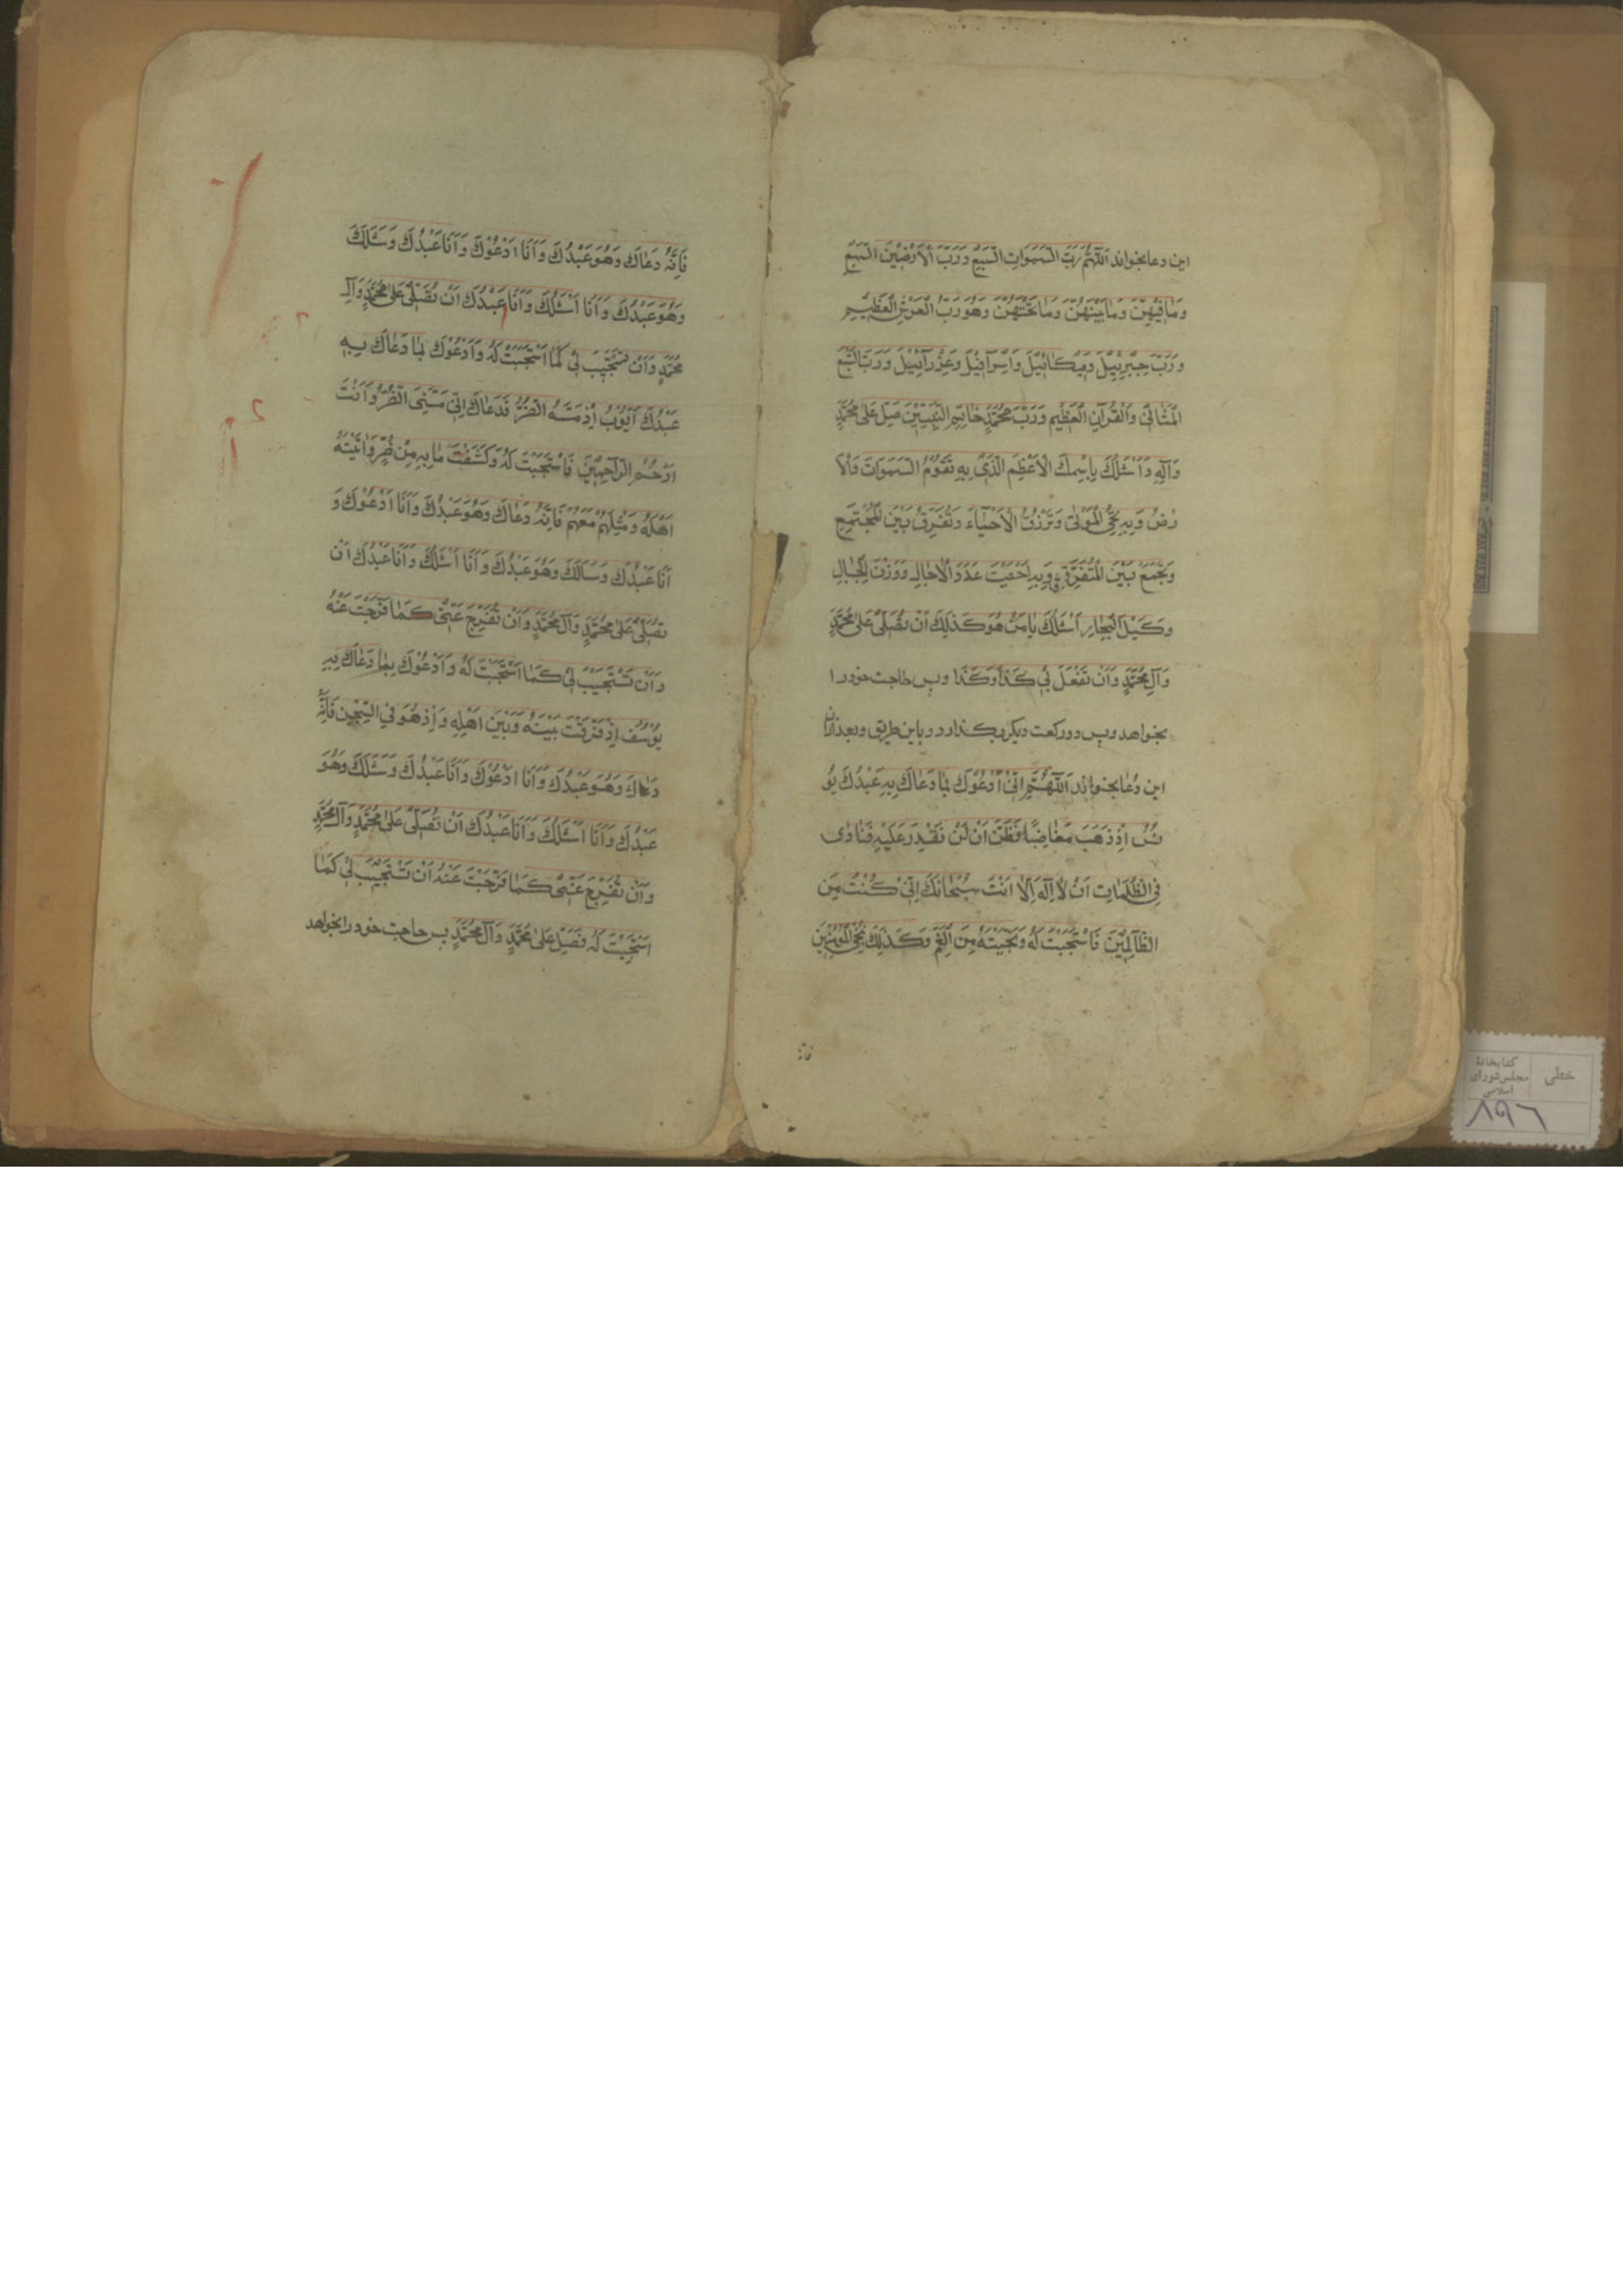 این دعا بخواند اَللّٰهُمَّ رَبَّ السَّمَوَاتِ السَّبْعِ وَرَبَّ الْاَرَضِيْنَ السَّبْعِ
وَمَا فِيْهِنَّ وَمَا بَيْنَهُنَّ وَمَا تَحْتَهُنَّ وَهُوَ رَبُّ الْعَرْشِ الْعَظِيْمِ
وَرَبَّ جِبْرِئِيْلَ وَمِيْكَائِيْلَ وَاِسْرَافِيْلَ وَعِزْرَائِيْلَ وَرَبَّ السَّبْعِ
الْمَثَانِيْ وَالْقُرْآنِ الْعَظِيْمِ وَرَبَّ مُحَمَّدٍ خَاتِمِ النَّبِيِّيْنَ صَلِّ عَلٰى مُحَمَّدٍ
وَآلِهِ وَاَسْئَلُكَ بِاِسْمِكَ الْاَعْظَمِ الَّذِيْ بِهِ تَقُوْمُ السَّمَوَاتُ وَالْاَ
رْضُ وَبِهِ تُحْيِي الْمَوْتٰى وَتَرْزُقُ الْاَحْيَاءَ وَتُفَرِّقُ بَيْنَ الْمُجْتَمِعِ
وَتَجْمَعُ بَيْنَ الْمُتَفَرِّقِ وَبِهِ اَحْصَيْتَ عَدَدَ الْاٰجَالِ وَوَزْنَ الْجِبَالِ
وَكَيْلَ الْبِحَارِ اَسْئَلُكَ يَا مَنْ هُوَ كَذٰلِكَ اَنْ تُصَلِّيَ عَلٰى مُحَمَّدٍ
وَآلِ مُحَمَّدٍ وَاَنْ تَفْعَلَ بِيْ كَذَا وَكَذَا و پس حاجت خود را
بخواهد و پس دو رکعت دیکر بکذارد و باین طریق و بعد ازان
این دُعا بخواند اَللّٰهُمَّ اِنِّيْ اَدْعُوْكَ بِمَا دَعَاكَ بِهِ عَبْدُكَ يُوْ
نُسُ اِذْ ذَهَبَ مُغَاضِبًا فَظَنَّ اَنْ لَنْ نَقْدِرَ عَلَيْهِ فَنَادٰى
فِي الظُّلُمَاتِ اَنْ لَا اِلٰهَ اِلَّا اَنْتَ سُبْحَانَكَ اِنِّيْ كُنْتُ مِنَ
الظَّالِمِيْنَ فَاسْتَجَبْتَ لَهُ وَنَجَّيْتَهُ مِنَ الْغَمِّ وَكَذٰلِكَ نُنْجِي الْمُؤْمِنِيْنَ
فَاِنَّهُ
فَاِنَّهُ دَعَاكَ وَهُوَ عَبْدُكَ وَاَنَا اَدْعُوْكَ وَاَنَا عَبْدُكَ وَسَئَلَكَ
وَهُوَ عَبْدُكَ وَاَنَا اَسْئَلُكَ وَاَنَا عَبْدُكَ اَنْ تُصَلِّيَ عَلٰى مُحَمَّدٍ وَآلِ
مُحَمَّدٍ وَاَنْ تَسْتَجِيْبَ لِيْ كَمَا اسْتَجَبْتَ لَهُ وَاَدْعُوْكَ بِمَا دَعَاكَ بِهِ
عَبْدُكَ اَيُّوْبُ اِذْ مَسَّهُ الضُّرُّ فَدَعَاكَ اِنِّيْ مَسَّنِيَ الضُّرُّ وَاَنْتَ
اَرْحَمُ الرَّاحِمِيْنَ فَاسْتَجَبْتَ لَهُ وَكَشَفْتَ مَا بِهِ مِنْ ضُرٍّ وَآتَيْتَهُ
اَهْلَهُ وَمِثْلَهُمْ مَعَهُمْ فَاِنَّهُ دَعَاكَ وَهُوَ عَبْدُكَ وَاَنَا اَدْعُوْكَ وَ
اَنَا عَبْدُكَ وَسَاَلَكَ وَهُوَ عَبْدُكَ وَاَنَا اَسْئَلُكَ وَاَنَا عَبْدُكَ اَنْ
تُصَلِّيَ عَلٰى مُحَمَّدٍ وَآلِ مُحَمَّدٍ وَاَنْ تُفَرِّجَ عَنِّيْ كَمَا فَرَّجْتَ عَنْهُ
وَاَنْ تَسْتَجِيْبَ لِيْ كَمَا اسْتَجَبْتَ لَهُ وَاَدْعُوْكَ بِمَا دَعَاكَ بِهِ
يُوْسُفُ اِذْ فَرَّقْتَ بَيْنَهُ وَبَيْنَ اَهْلِهِ وَاِذْ هُوَ فِي السِّجْنِ فَاِنَّهُ
دَعَاكَ وَهُوَ عَبْدُكَ وَاَنَا اَدْعُوْكَ وَاَنَا عَبْدُكَ وَسَئَلَكَ وَهُوَ
عَبْدُكَ وَاَنَا اَسْئَلُكَ وَاَنَا عَبْدُكَ اَنْ تُصَلِّيَ عَلٰى مُحَمَّدٍ وَآلِ مُحَمَّدٍ
وَاَنْ تُفَرِّجَ عَنِّيْ كَمَا فَرَّجْتَ عَنْهُ اَنْ تَسْتَجِيْبَ لِيْ كَمَا
اسْتَجَبْتَ لَهُ فَصَلِّ عَلٰى مُحَمَّدٍ وَآلِ مُحَمَّدٍ پس حاجت خود را بخواهد
خطی
کتابخانهٔ
مجلس شورای
اسلامی
۸۹۶